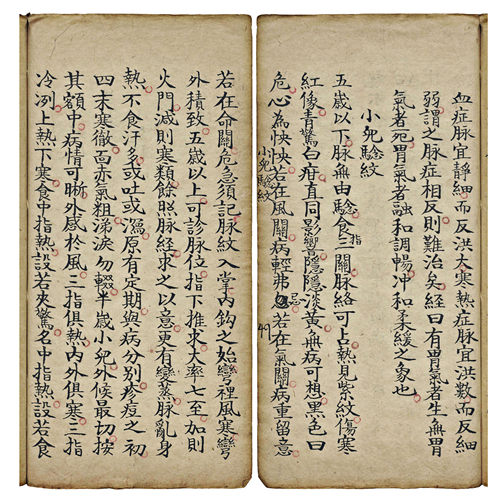 血症脉宜靜細而反洪大寒熱症脉宜洪數而反細
弱謂之脉症相反則難治矣經曰有胃氣者生無胃
氣者死胃氣者融和調暢冲和柔緩之象也
小兒驗紋
五歲以下脉無由驗食指三關脉絡可占熱見紫紋傷寒
紅像青驚白疳直同影響隱隱淡黃無病可想黑色曰
危心為怏怏若在風關病輕弗忌若在氣關病重留意
小兒驗紋
49
若在命關危急須記脉紋入掌內鈎之始彎裡風寒彎
外積致五歲以上可診脉位指下推求大率七至加則
火門減則寒類餘照脉經求之以意更有變蒸脉亂身
熱不食汗多或吐或瀉原有定期與病分別疹痘之初
四末寒徹面赤氣粗涕淚勿輟半歲小兒外候最切按
其額中病情可晰外感於風三指俱熱內外俱寒三指
冷冽上熱下寒食中指熱設若夾驚名中指熱設若食